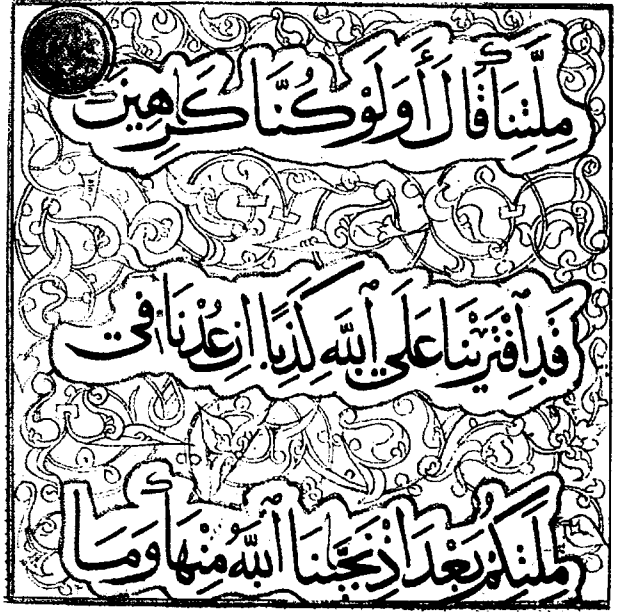 مِلَّتِنَا قَالَ أَوَلَوْ كُنَّا كَٰرِهِينَ
قَدِ ٱفْتَرَيْنَا عَلَى ٱللَّهِ كَذِبًا إِنْ عُدْنَا فِى
مِلَّتِكُم بَعْدَ إِذْ نَجَّىٰنَا ٱللَّهُ مِنْهَا وَمَا